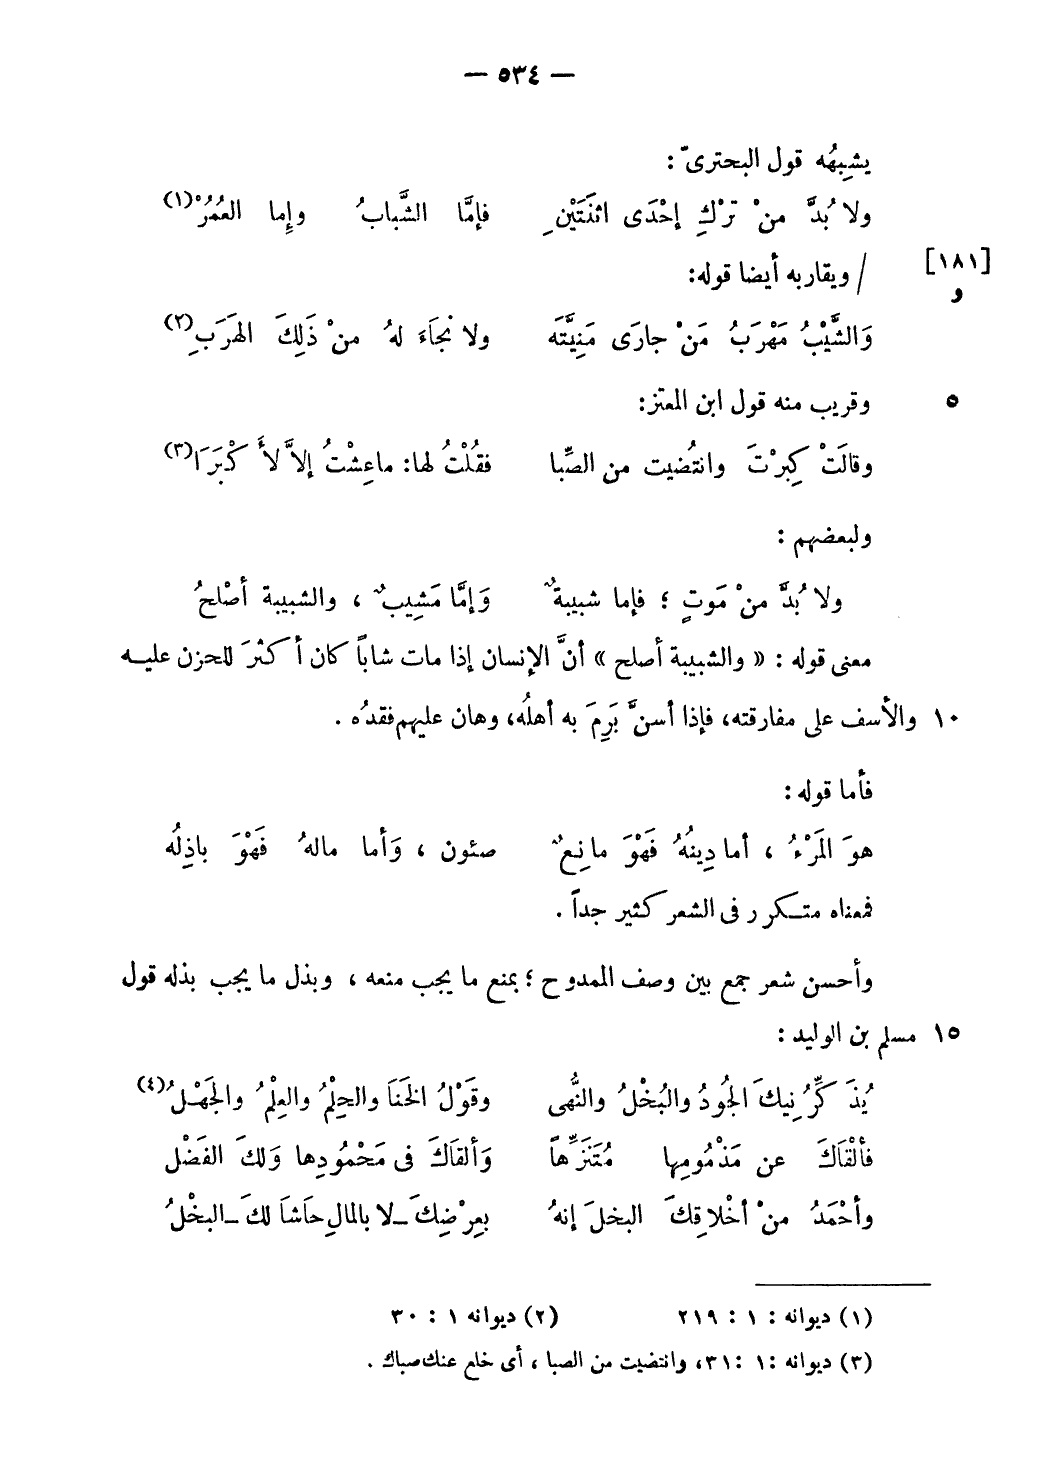 — ٥٣٤ —
يشبِهُه قول البحترىّ :
ولا بُدَّ منْ ترْكِ إحْدَى اثنَتَيْنِ فإمَّا الشَّبابُ وإِما العُمُرْ(١)
[١٨١] / ويقاربه أيضا قوله:
و
وَالشَّيْبُ مَهْرَبُ مَنْ جارَى مَنِيَّتَه ولا نَجَاءَ لهُ منْ ذَلِكَ الهَرَبِ(٢)
٥ وقريب منه قول ابن المعتز:
وقالَتْ كبِرْتَ وانتُضيت من الصِّبا فقُلْتُ لها: ماعِشْتُ إلاَّ لأَكْبَرَا(٣)
ولبعضهم :
ولا بُدَّ منْ مَوتٍ ؛ فإما شبيبةٌ وَإمَّا مَشِيبٌ ، والشبيبة أصْلحُ
معنى قوله : « والشبيبة أصلح » أنَّ الإنسان إذا مات شاباً كان أكثرَ للحزن عليه
١٠ والأسف على مفارقته، فإذا أسنَّ بَرِمَ به أهلُه، وهان عليهم فقدُه .
فأما قوله:
هوَ المَرْءُ ، أما دِينُهُ فَهْوَ مانِعٌ صئون ، وَأما مالهُ فَهْوَ باذِلُه
فمعناه متكرر فى الشعر كثير جداً .
وأحسن شعر جمع بين وصف الممدوح ؛ بمنع ما يجب منعه ، وبذل ما يجب بذله قول
١٥ مسلم بن الوليد :
يُذَكِّرُنِيكَ الجُودُ والبُخْلُ والنُّهى وقَوْلُ الخَنَا والحِلْمُ والعِلْمُ والجَهْلُ(٤)
فألْقَاكَ عن مَذْمُومِها مُتَنَزِّهاً وَألقَاكَ فى مَحْمُودِها وَلكَ الفَضْل
وأحْمَدُ منْ أخْلاقِكَ البخلَ إنهُ بعِرْضِكَ ـ لا بالمالِ حَاشَا لكَ ـ البخْلُ
(١) ديوانه : ١ : ٢١٩ (٢) ديوانه ١ : ٣٠
(٣) ديوانه :١ :٣١، وانتضيت من الصبا ، أى خلع عنك صباك .